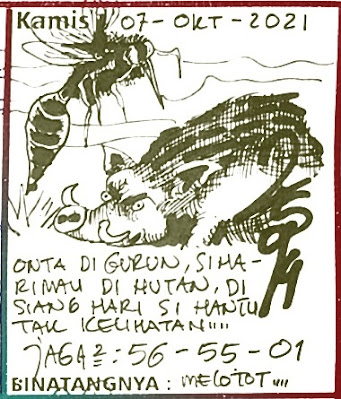 Kamis 07-OKT-2021
ONTA DI GURUN, SIHA-
RIMAU DI HUTAN, DI
SIANG HARI SI HANTU
TAK KELIHATAN....
JAGA2: 56-55-01
BINATANGNYA : MELOTOT....